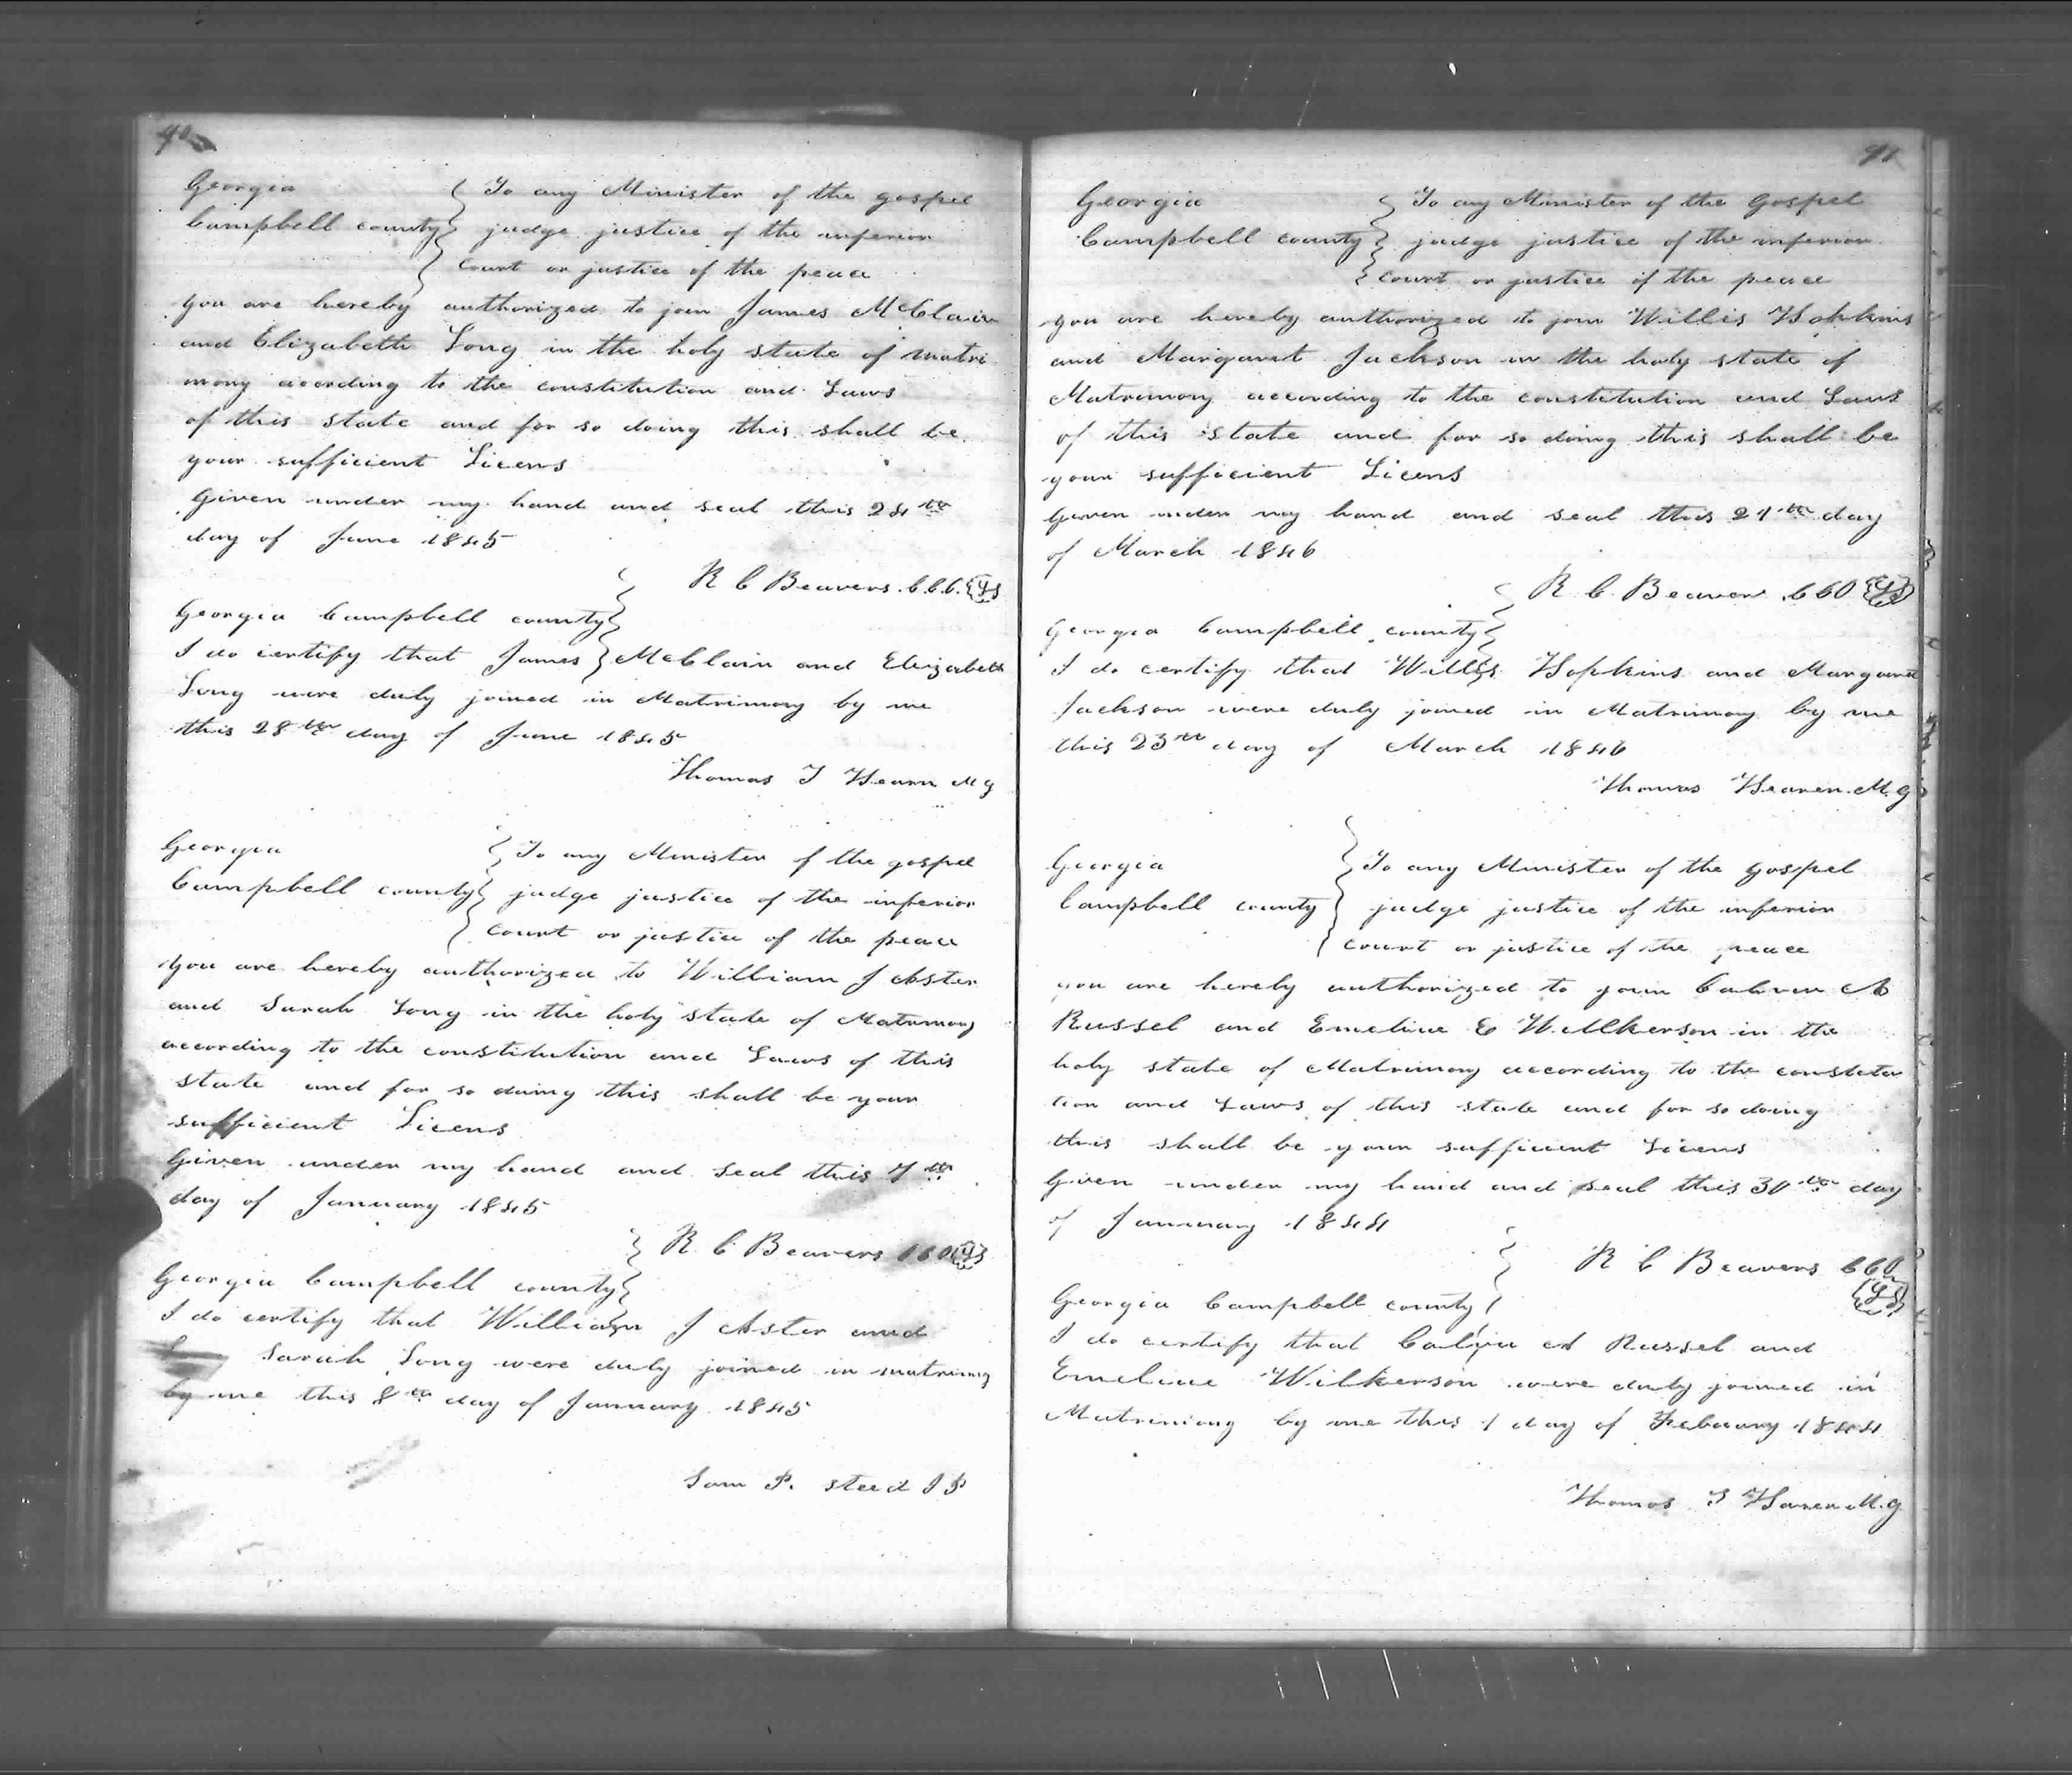 90
Georgia
Campbell county
To any Minister of the gospel
judge justice of the inferior
court or justice of the peace
you are hereby authorized to join James McClain
and Elizabeth Long in the holy state of matri
mony according to the constitution and Laws
of this state and for so doing this shall be
your sufficient Licens
Given under my hand and seal this 24th
day of June 1845
R C Beavers C.C.O. LS
Georgia Campbell county
I do certify that James McClain and Elizabeth
Long were duly joined in Matrimony by me
this 28th day of June 1845
Thomas J Hearn M g
Georgia
Campbell county
To any Minister of the gospel
judge justice of the inferior
court or justice of the peace
you are hereby authorized to William J
and Sarah Long in the holy state of Matrimony
according to the constitution and Laws of this
state and for so doing this shall be your
sufficient Licens
Given under my hand and seal this 7th
day of January 1845
R C Beavers CCO LS
Georgia Campbell county
I do certify that William J and
Sarah Long were duly joined in matrimony
by me this 8th day of January 1845
Sam P. steed J P
91
Georgia
Campbell county
To any Minister of the Gospel
judge justice of the inferior
court or justice of the peace
you are hereby authorized to join Willis Hopkins
and Margaret Jackson in the holy state of
Matrimony according to the constitution and Laws
of this state and for so doing this shall be
your sufficient Licens
Given under my hand and seal this 21th day
of March 1846
R. C. Beavers CCO LS
Georgia Campbell county
I do certify that Willis Hopkins and Margaret
Jackson were duly joined in Matrimony by me
this 23rd day of March 1846
Thomas Hearen M.g
Georgia
Campbell county
To any Minister of the gospel
judge justice of the inferior
court or justice of the peace
you are hereby authorized to join Calvin A
Russel and Emeline E Willkerson in the
holy state of Matrimony according to the constitu
tion and Laws of this state and for so doing
this shall be your sufficient Licens
Given under my hand and seal this 30th day
of January 1844
R C Beavers CCO
LS
Georgia Campbell county
I do certify that Calvin A Russel and
Emeline Wilkerson were duly joined in
Matrimony by me this 1 day of Febuary 1844
Thomas J Haren M.g